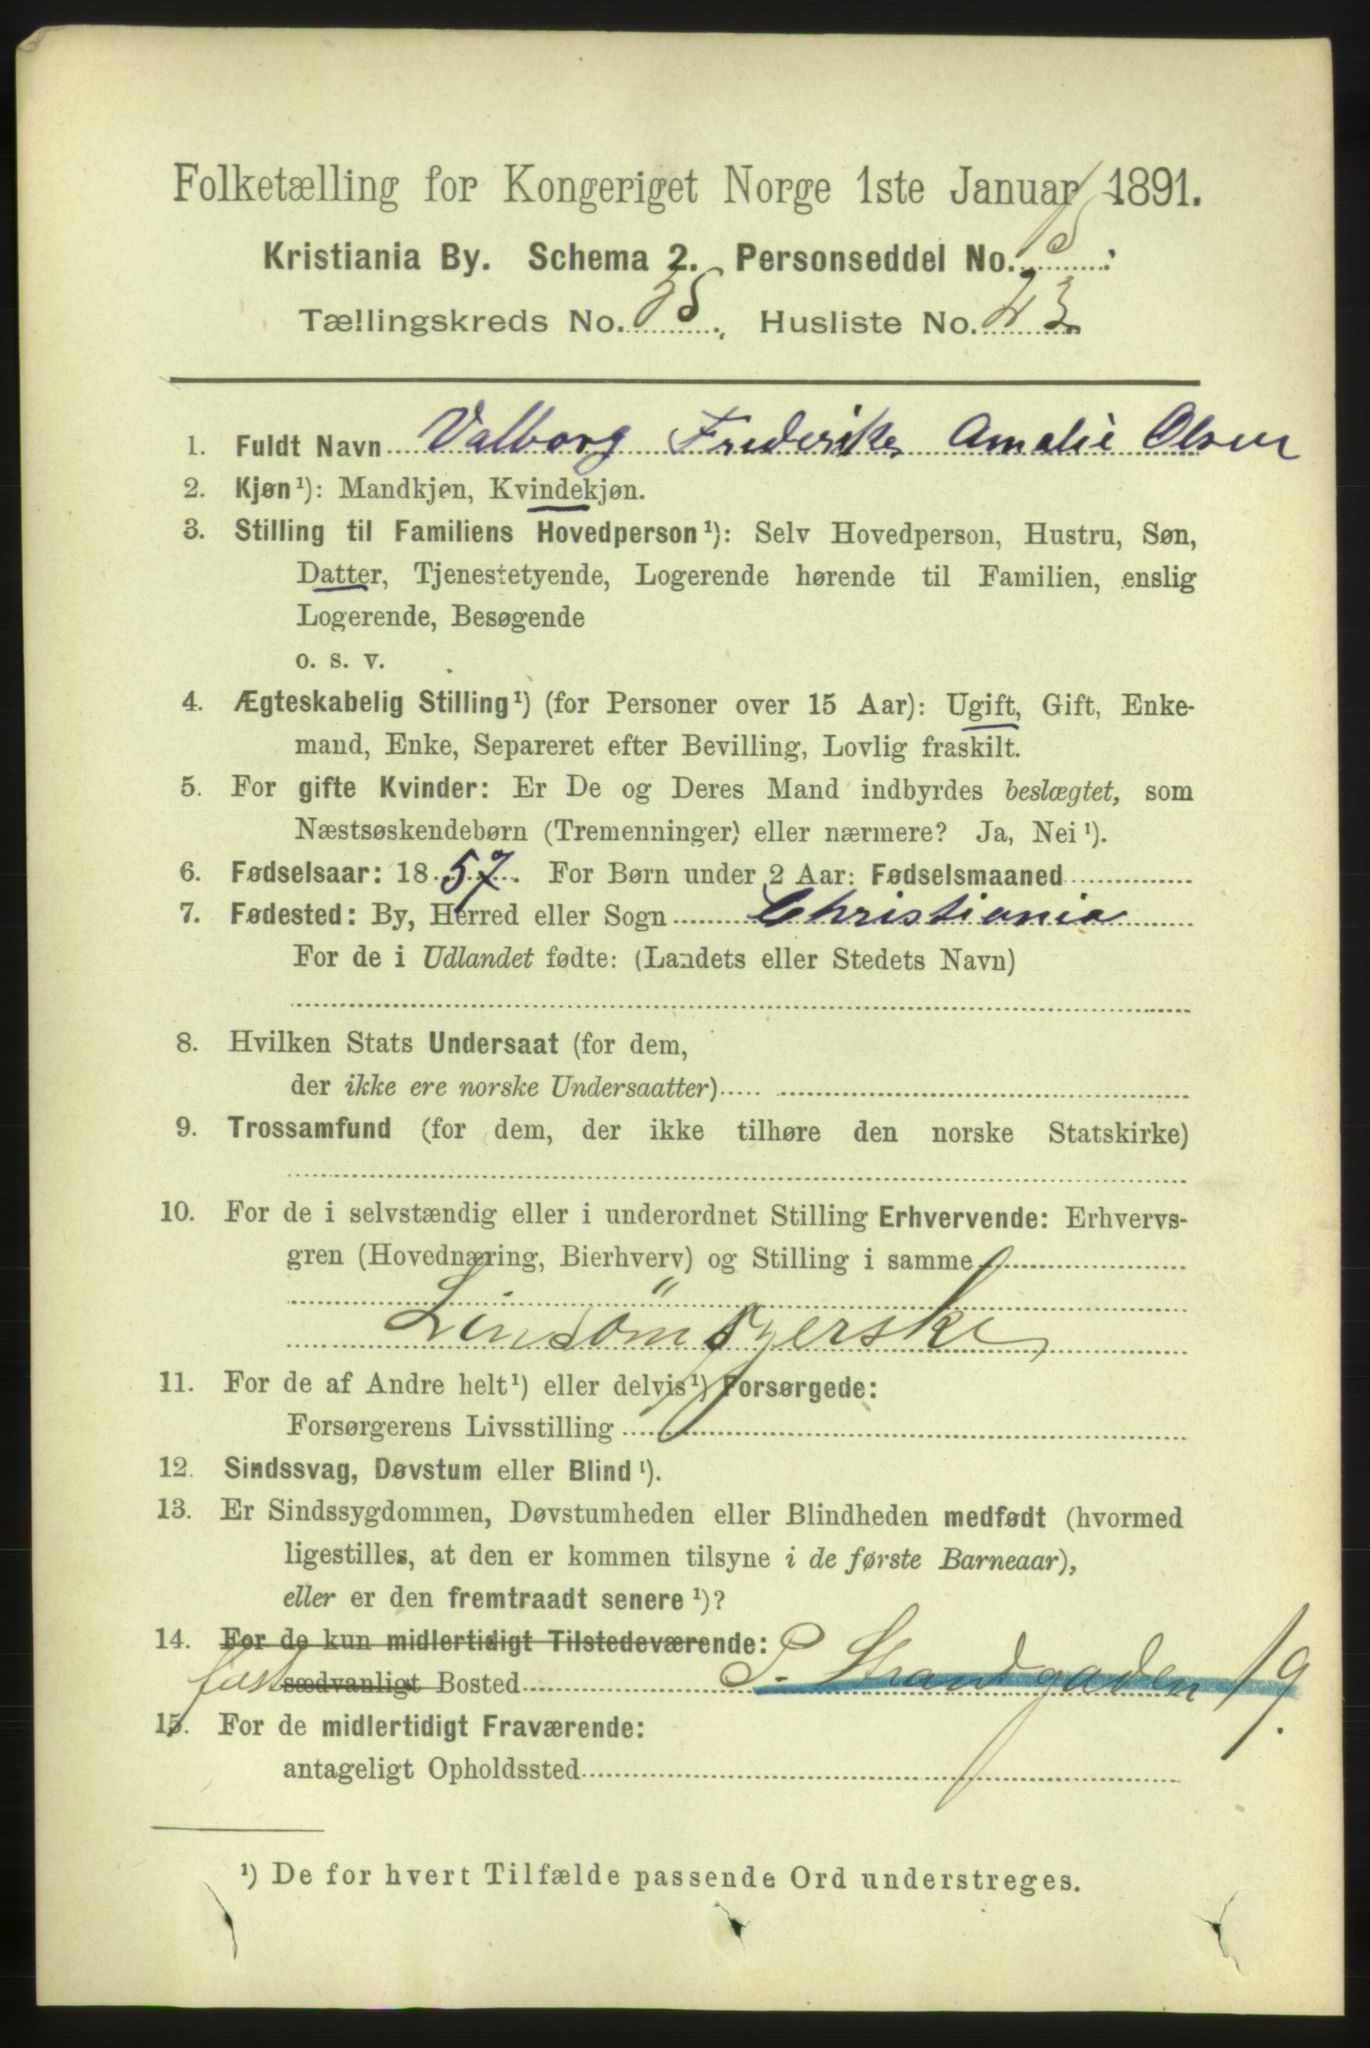 Folketælling for Kongeriget Norge 1ste Januar 1891.
Kristiania By. Schema 2. Personseddel No. 5.
Tællingskreds No. 35. Husliste No. 23.
1. Fuldt Navn Valborg Frederikke Amalie Olsen
2. Kjøn ¹): Mandkjøn, Kvindekjøn.
3. Stilling til Familiens Hovedperson ¹): Selv Hovedperson, Hustru, Søn,
Datter, Tjenestetyende, Logerende hørende til Familien, enslig
Logerende, Besøgende
o. s. v.
4. Ægteskabelig Stilling ¹) (for Personer over 15 Aar): Ugift, Gift, Enke-
mand, Enke, Separeret efter Bevilling, Lovlig fraskilt.
5. For gifte Kvinder: Er De og Deres Mand indbyrdes beslægtet, som
Næstsøskendebørn (Tremenninger) eller nærmere? Ja, Nei ¹).
6. Fødselsaar: 1857. For Børn under 2 Aar: Fødselsmaaned
7. Fødested: By, Herred eller Sogn Christiania
For de i Udlandet fødte: (Landets eller Stedets Navn)
8. Hvilken Stats Undersaat (for dem,
der ikke ere norske Undersaatter)
9. Trossamfund (for dem, der ikke tilhøre den norske Statskirke)
10. For de i selvstændig eller i underordnet Stilling Erhvervende: Erhvervs-
gren (Hovednæring, Bierhverv) og Stilling i samme
Linsömgerske
11. For de af Andre helt ¹) eller delvis ¹) Forsørgede:
Forsørgerens Livsstilling
12. Sindssvag, Døvstum eller Blind ¹).
13. Er Sindssygdommen, Døvstumheden eller Blindheden medfødt (hvormed
ligestilles, at den er kommen tilsyne i de første Barneaar),
eller er den fremtraadt senere ¹)?
14. For de kun midlertidigt Tilstedeværende:
fast sædvanligt Bosted P. Strandgaden 19.
15. For de midlertidigt Fraværende:
antageligt Opholdssted
¹) De for hvert Tilfælde passende Ord understreges.